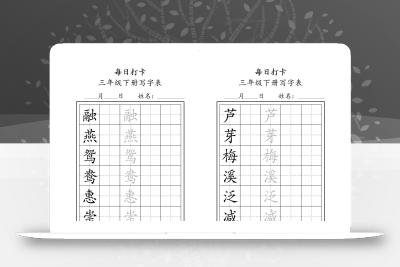 每日打卡
三年级下册写字表
月____日 姓名:____
融 融
燕 燕
鸳 鸳
鸯 鸯
惠 惠
崇 崇
每日打卡
三年级下册写字表
月____日 姓名:____
芦 芦
芽 芽
梅 梅
溪 溪
泛 泛
减 减